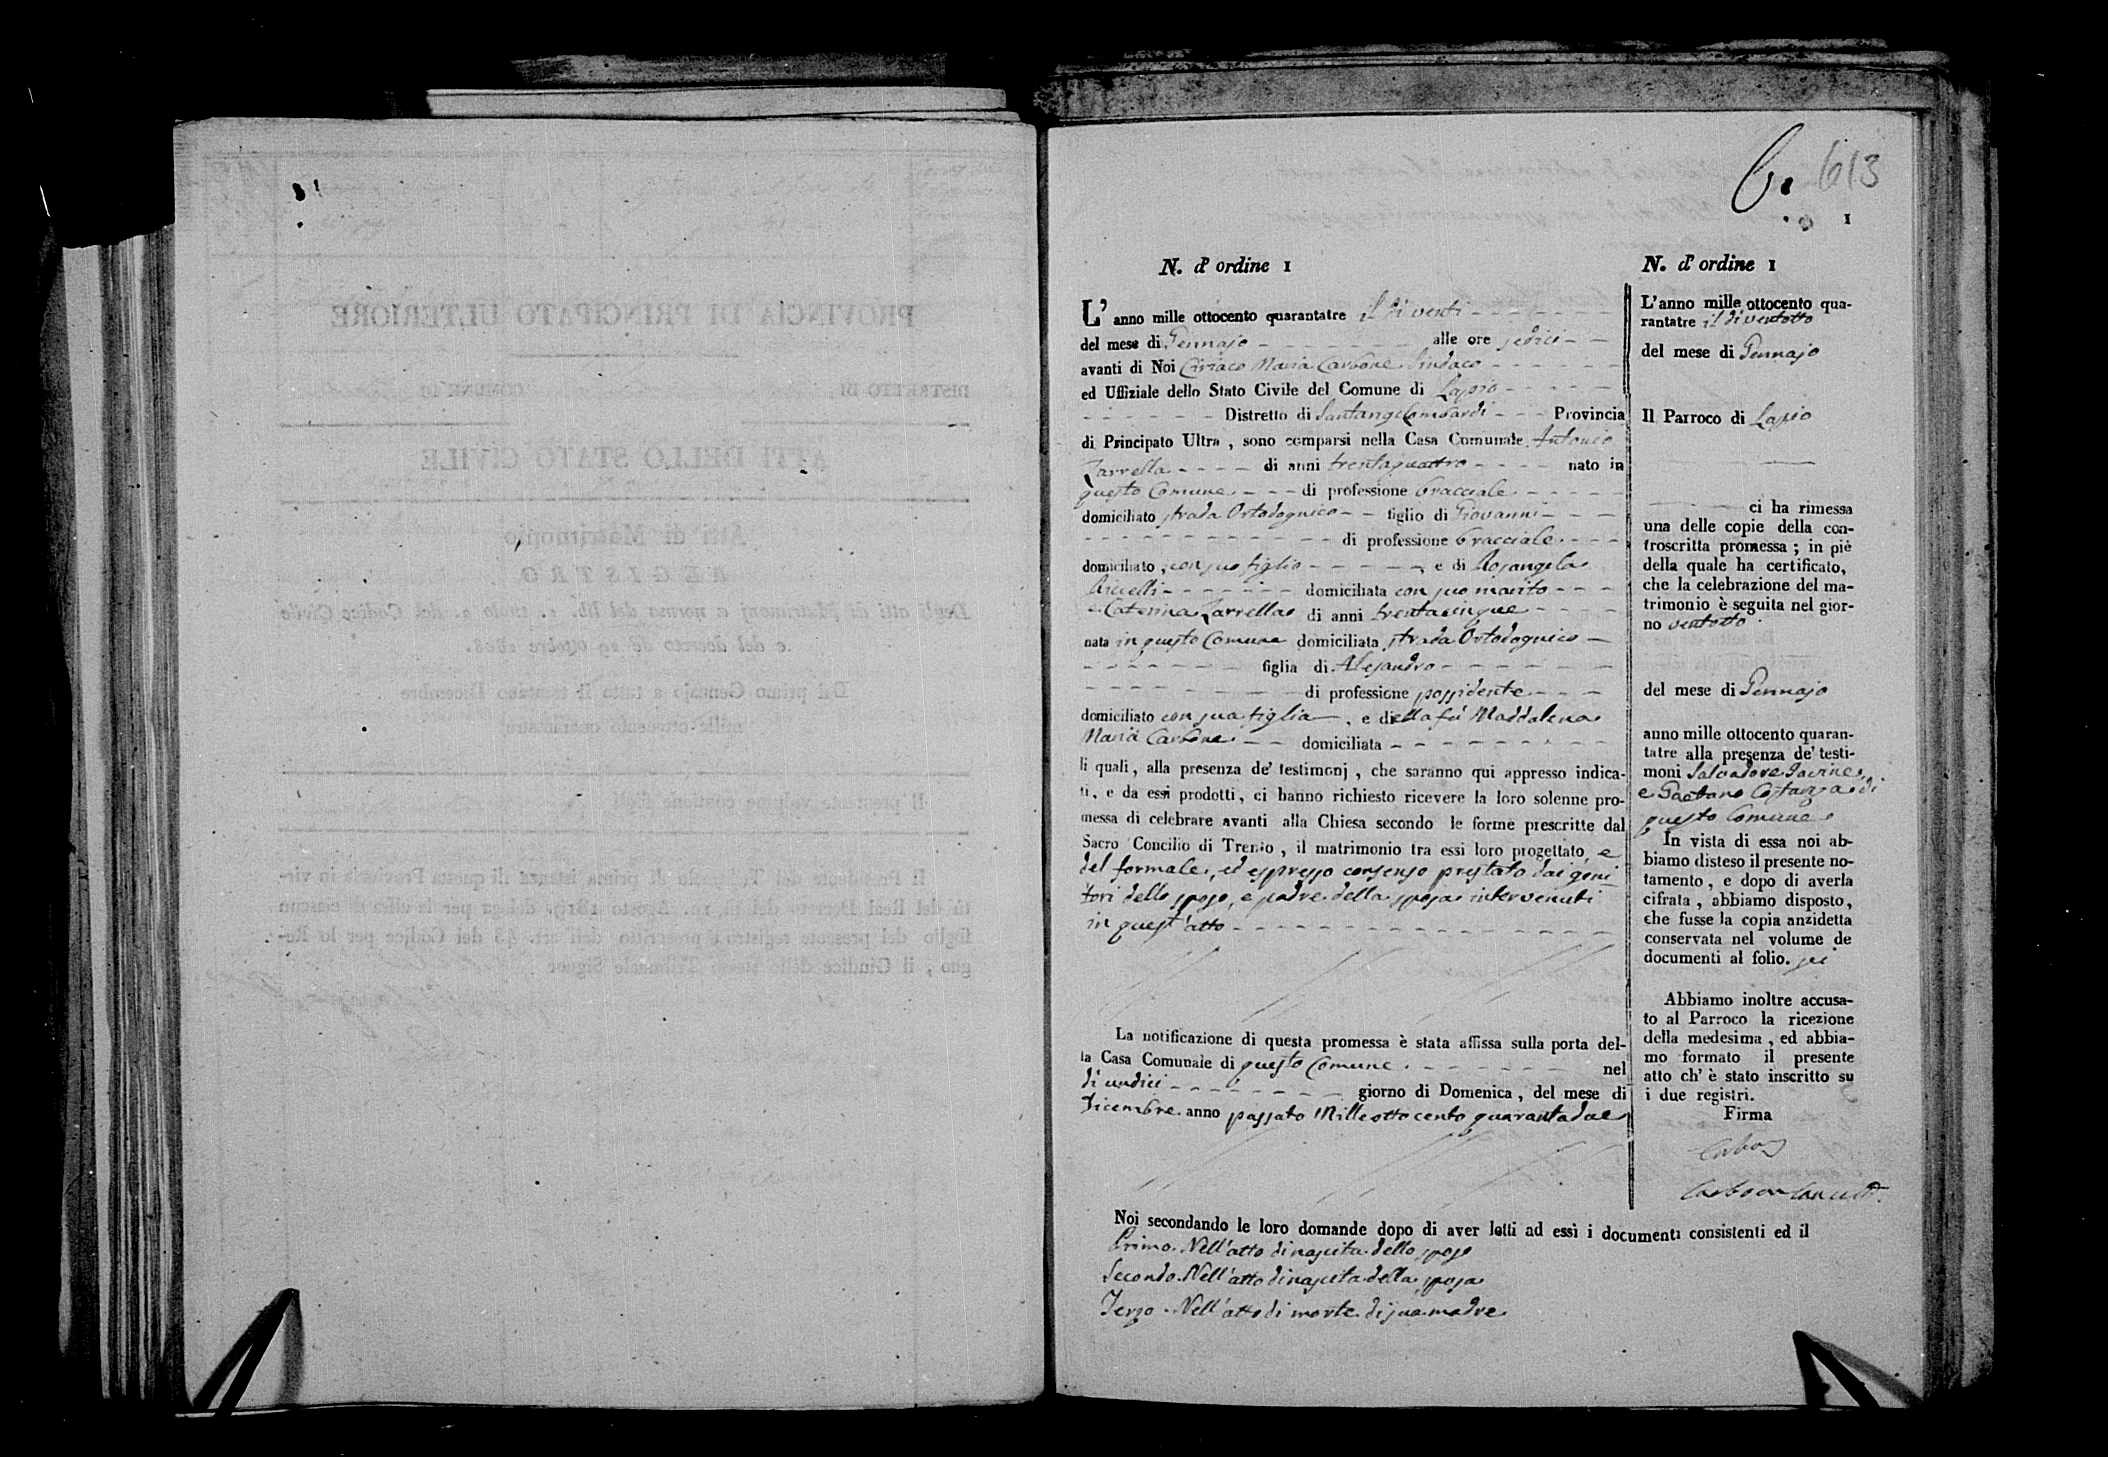 613
1
N. d' ordine 1
L' anno mille ottocento quarantatre il dì venti
del mese di Gennajo alle ore sedici
avanti di Noi Ciriaco Maria Carbone Sindaco
ed Uffiziale dello Stato Civile del Comune di Lapio
Distretto di Santangelombardi Provincia
di Principato Ultra , sono comparsi nella Casa Comunale Antonio
Zarrella di anni trentaquattro nato in
questo Comune di professione bracciale
domiciliato strada Ortodognico figlio di Giovanni
di professione bracciale
domiciliato , con suo figlio , e di Rosangela
domiciliata con suo marito
e Caterina Zarrella di anni trentacinque
nata in questo Comune domiciliata strada Ortodognico
figlia di Alesandro
di professione possidente
domiciliato con sua figlia , e della fu Maddalena
Maria Carbone domiciliata
li quali , alla presenza de' testimonj , che saranno qui appresso indica-
ti , e da essi prodotti , ci hanno richiesto ricevere la loro solenne pro-
messa di celebrare avanti alla Chiesa secondo le forme prescritte dal
Sacro Concilio di Trento , il matrimonio tra essi loro progettato, e
del formale, ed espresso consenso prestato dai geni-
tori dello sposo, e padre della sposa intervenuti
in quest'atto
La notificazione di questa promessa è stata affissa sulla porta del-
la Casa Comunale di questo Comune nel
dì undici giorno di Domenica , del mese di
Dicembre anno passato Mille otto cento quarantadue
N. d' ordine 1
L'anno mille ottocento qua-
rantatre il dì ventotto
del mese di Gennajo
Il Parroco di Lapio
ci ha rimessa
una delle copie della con-
troscritta promessa ; in piè
della quale ha certificato,
che la celebrazione del ma-
trimonio è seguita nel gior-
no ventotto
del mese di Gennajo
anno mille ottocento quaran-
tatre alla presenza de' testi-
moni Salvadore
e Gaetano Costanza di
questo Comune
In vista di essa noi ab-
biamo disteso il presente no-
tamento , e dopo di averla
cifrata , abbiamo disposto,
che fusse la copia anzidetta
conservata nel volume de
documenti al folio. sei
Abbiamo inoltre accusa-
to al Parroco la ricezione
della medesima , ed abbia-
mo formato il presente
atto ch' è stato inscritto su
i due registri.
Firma
Noi secondando le loro domande dopo di aver letti ad essi i documenti consistenti ed il
Primo. Nell'atto di nascita dello sposo
Secondo. Nell'atto di nascita della sposa
Terzo. Nell'atto di morte di sua madre